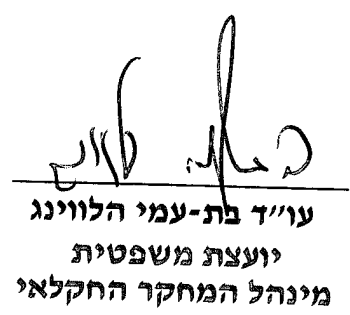 עו״ד בת-עמי הלווינג
יועצת משפטית
מינהל המחקר החקלאי